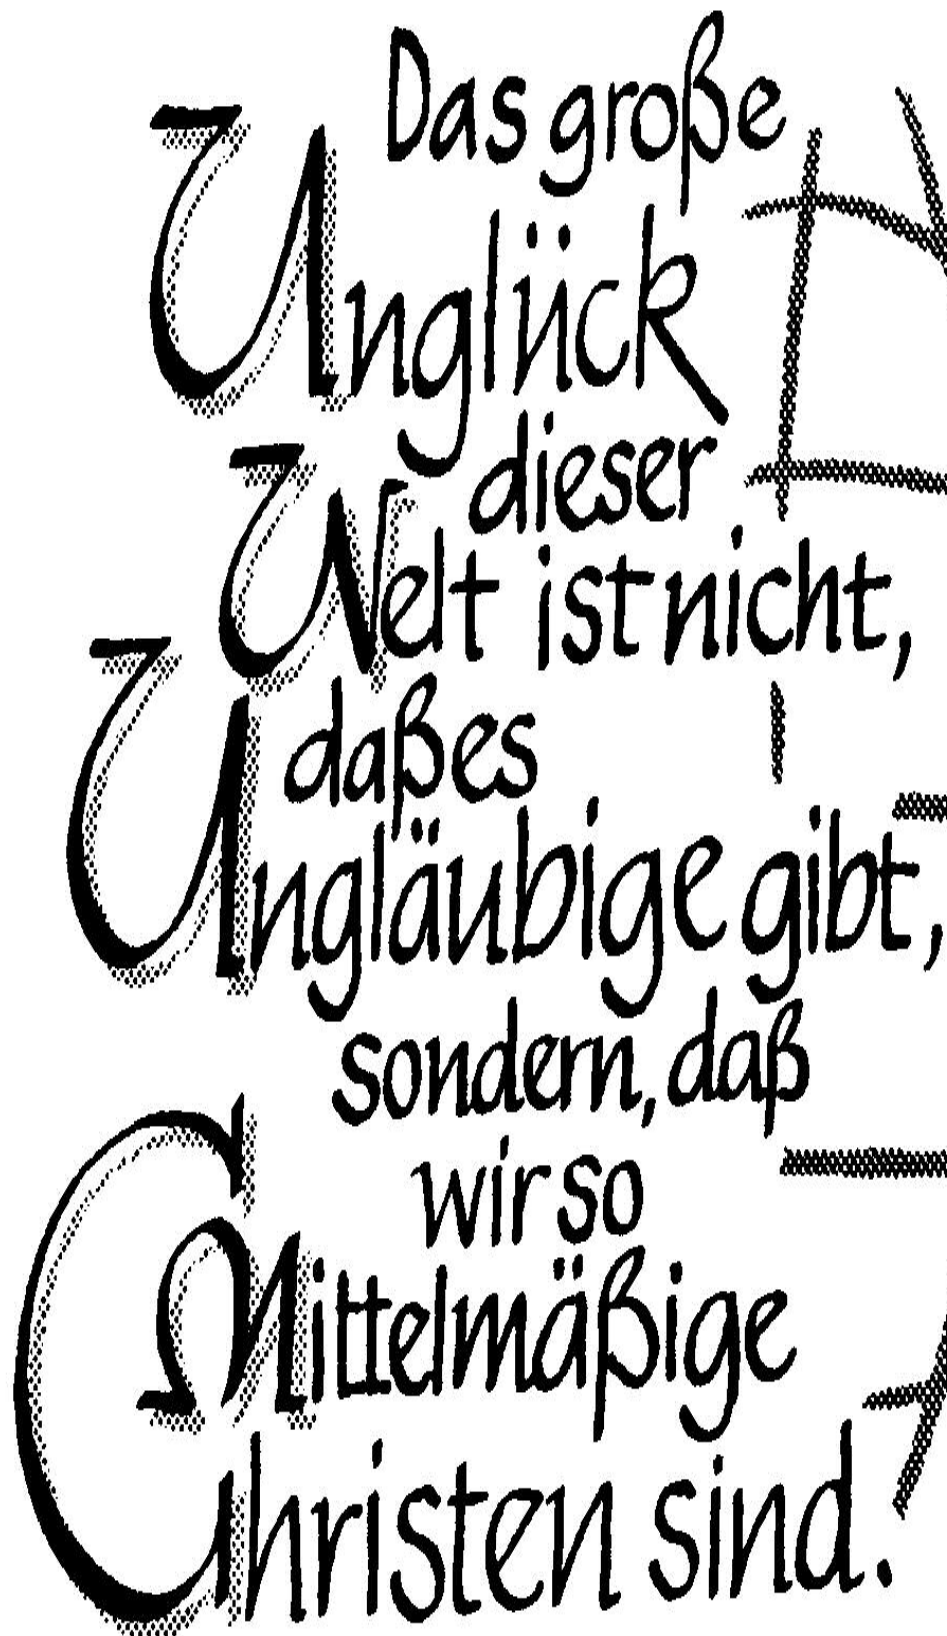 Das große
Unglück
dieser
Welt ist nicht,
daß es
Ungläubige gibt,
sondern, daß
wir so
Mittelmäßige
Christen sind.